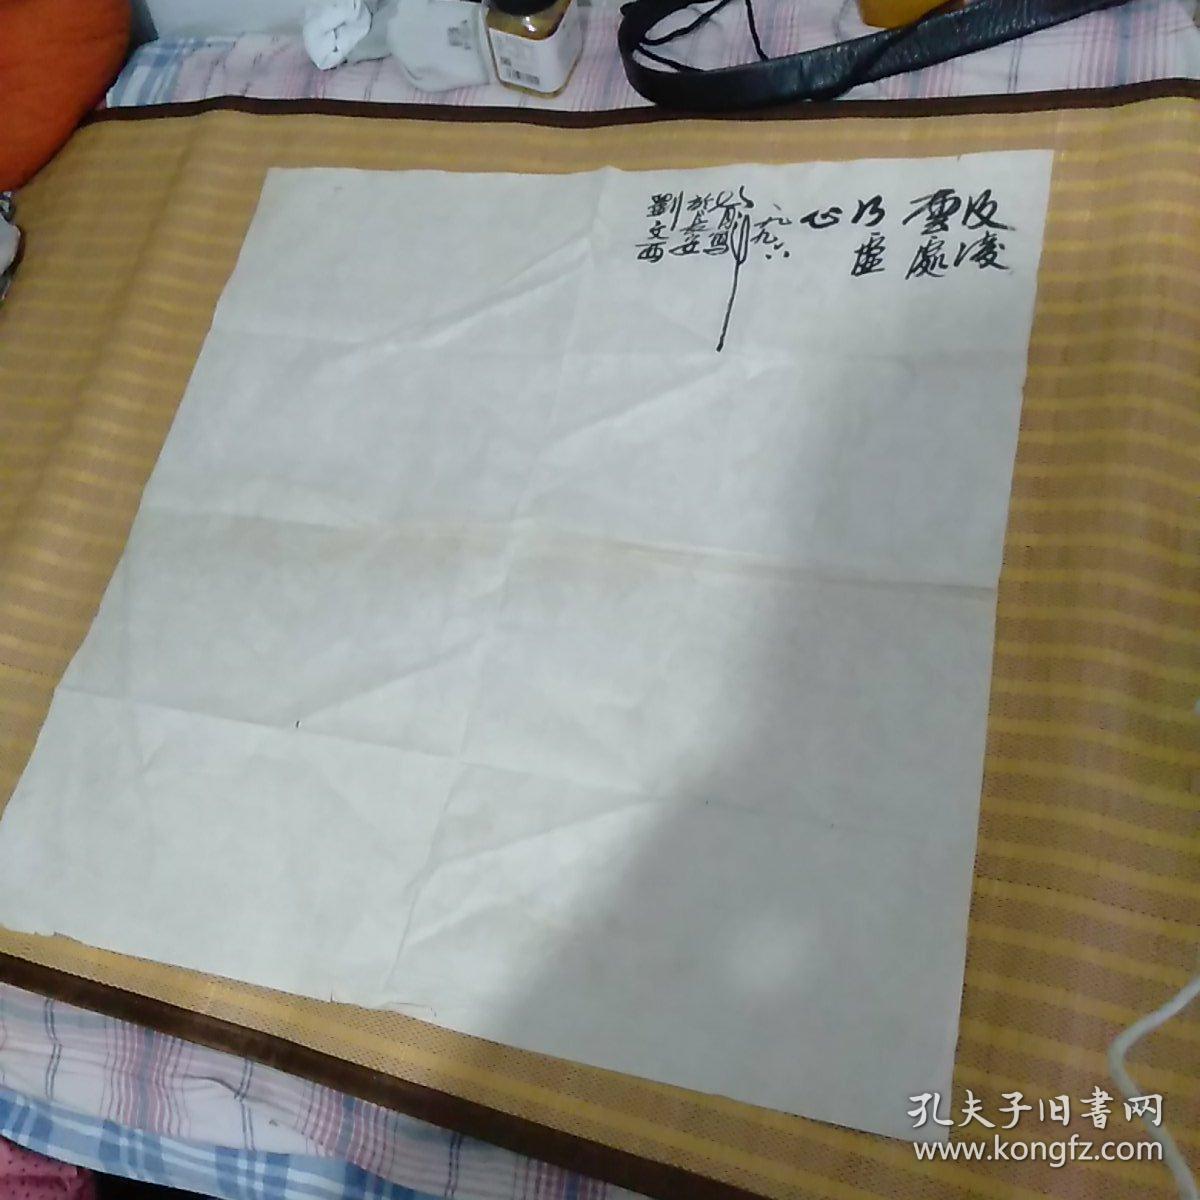 及凌
雲處
乃虛
心
一九九六
年
月寫
於長安
劉文西
孔夫子旧書网
www.kongfz.com